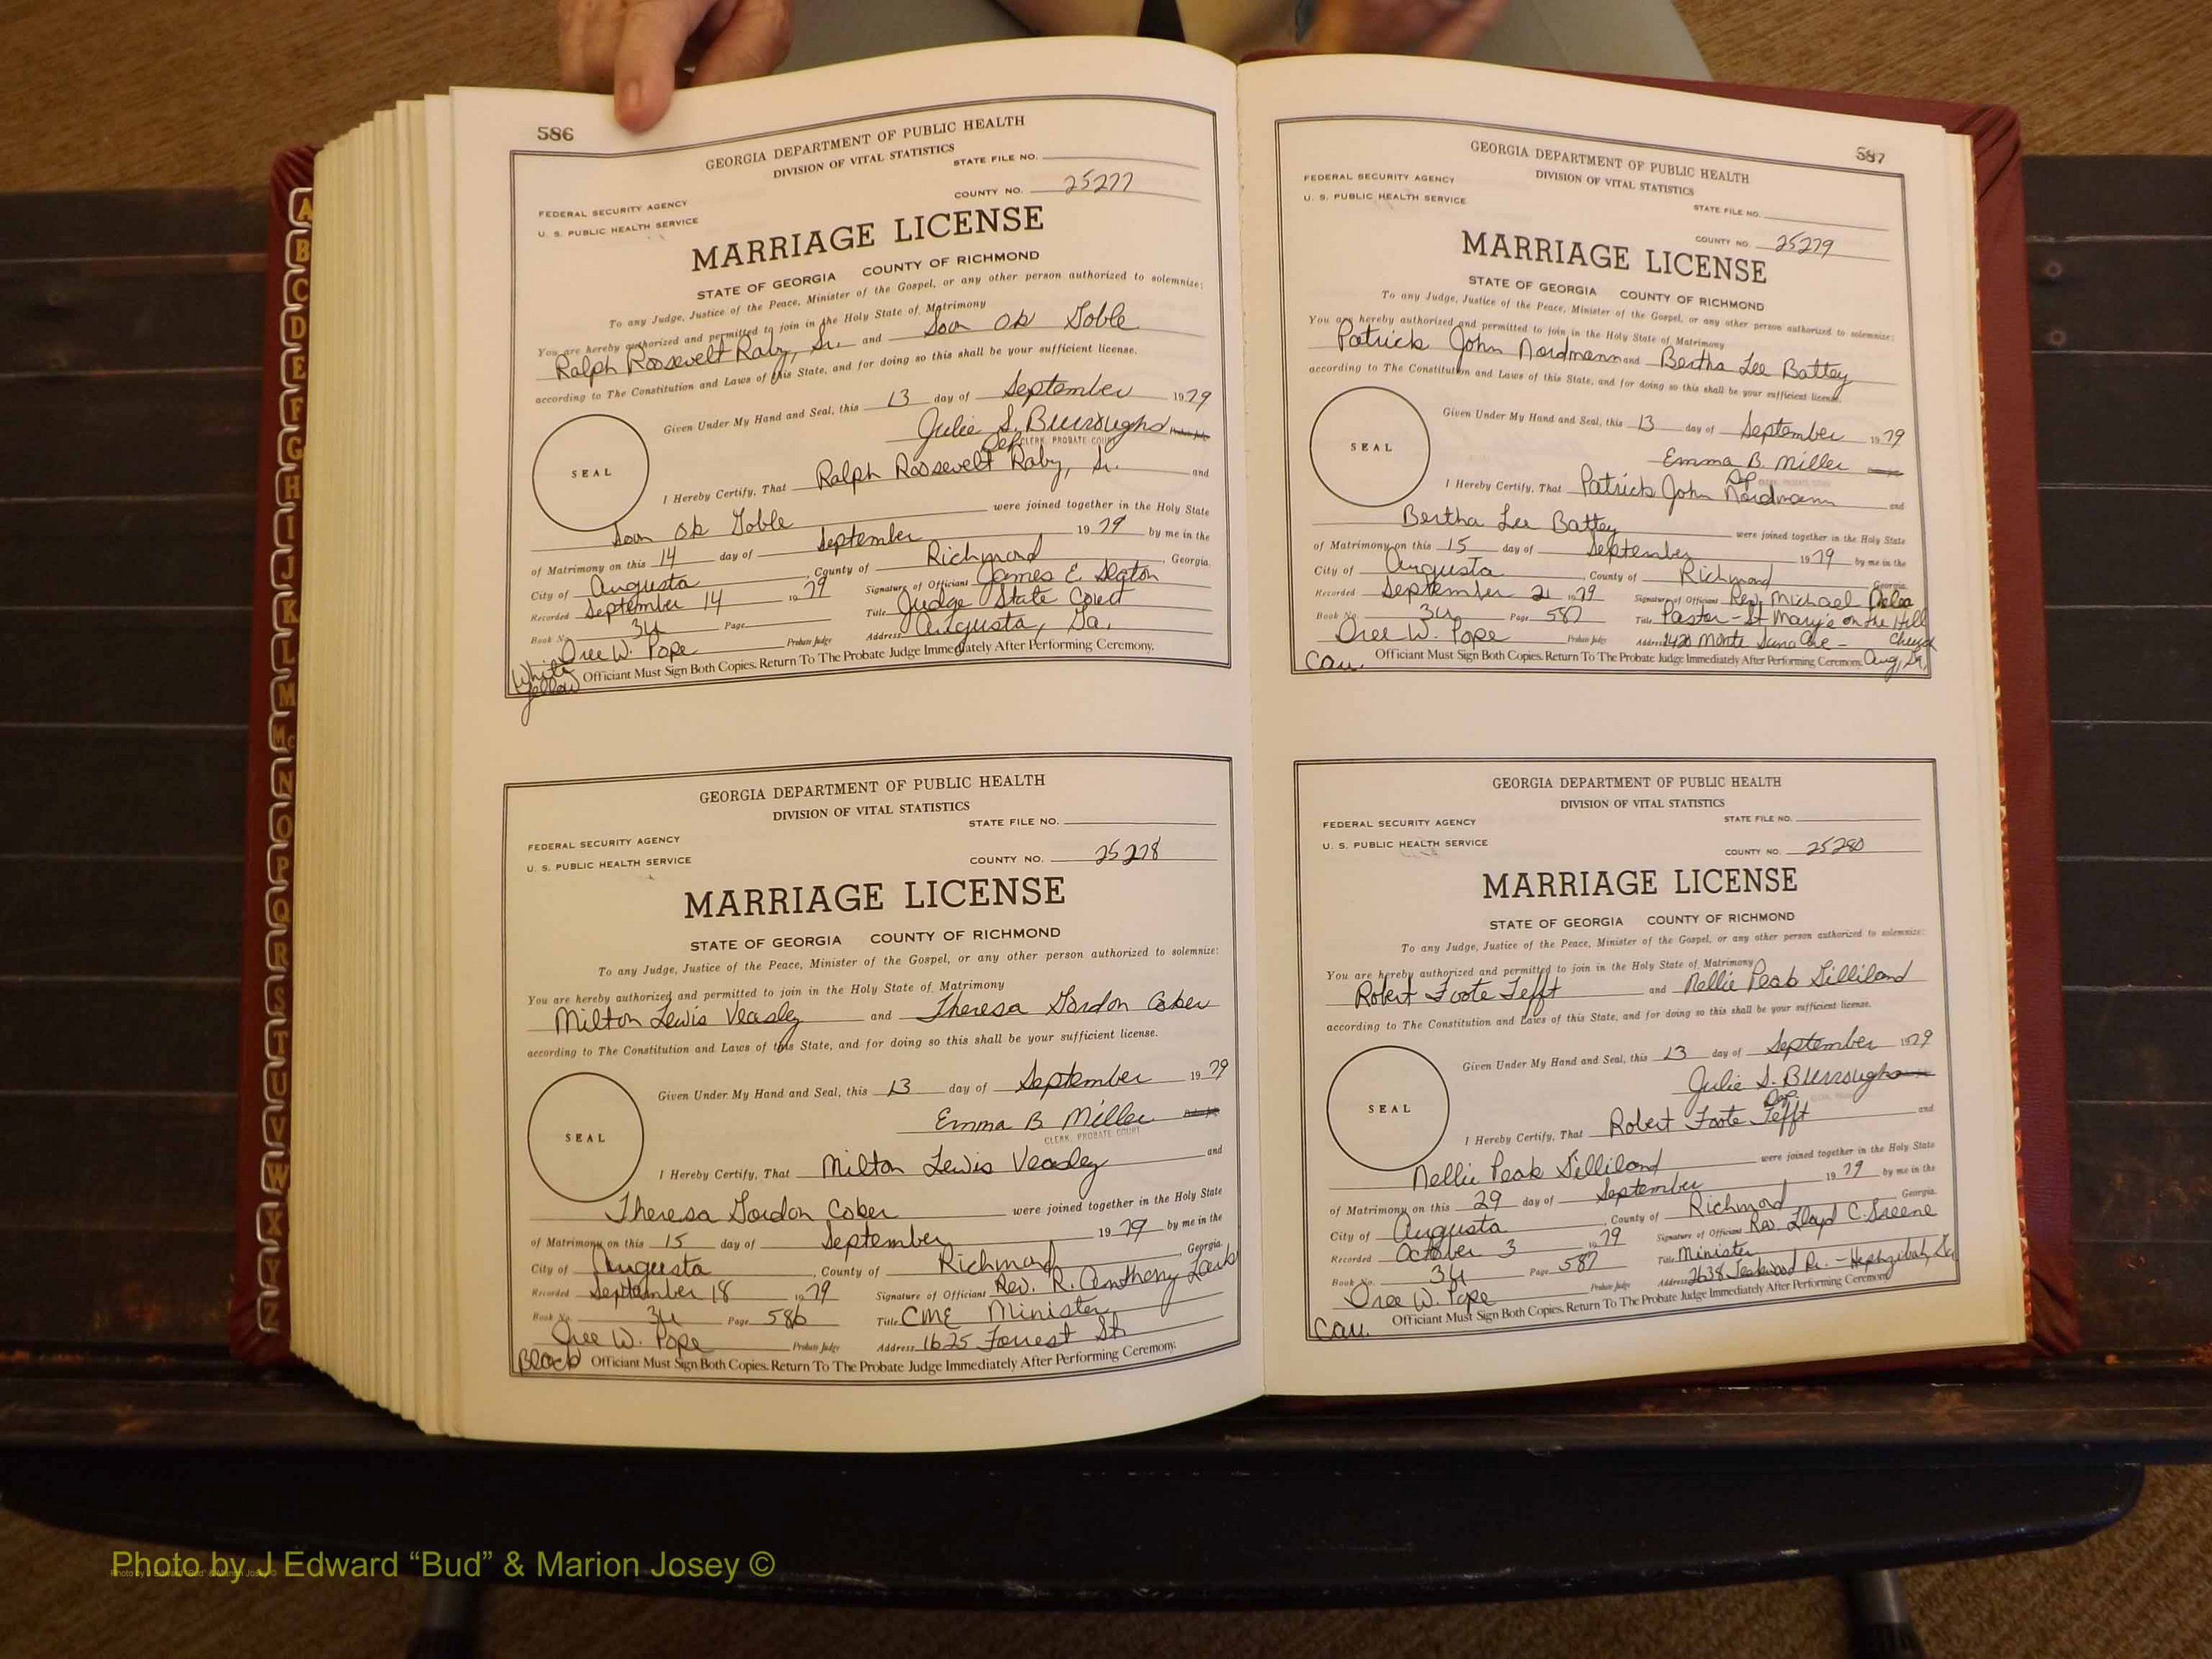 586
GEORGIA DEPARTMENT OF PUBLIC HEALTH
DIVISION OF VITAL STATISTICS
STATE FILE NO.
COUNTY NO. 25277
FEDERAL SECURITY AGENCY
U. S. PUBLIC HEALTH SERVICE
MARRIAGE LICENSE
STATE OF GEORGIA COUNTY OF RICHMOND
To any Judge, Justice of the Peace, Minister of the Gospel, or any other person authorized to solemnize:
You are hereby authorized and permitted to join in the Holy State of Matrimony
Ralph Roosevelt Raby, Sr. and Soon Ok Goble
according to The Constitution and Laws of this State, and for doing so this shall be your sufficient license.
Given Under My Hand and Seal, this 13 day of September 1979
Julie S. Burroughs Probate Judge
Dep CLERK, PROBATE COURT
SEAL
I Hereby Certify, That Ralph Roosevelt Raby, Sr. and
Soon Ok Goble were joined together in the Holy State
of Matrimony on this 14 day of September 1979 by me in the
City of Augusta, County of Richmond, Georgia.
Recorded September 14 1979 Signature of Officiant James E. Slaton
Book No. 34 Page Title Judge State Court
Oree W. Pope Probate Judge Address Augusta, Ga.
White
Yellow
Officiant Must Sign Both Copies. Return To The Probate Judge Immediately After Performing Ceremony.
GEORGIA DEPARTMENT OF PUBLIC HEALTH
DIVISION OF VITAL STATISTICS
STATE FILE NO.
FEDERAL SECURITY AGENCY
U. S. PUBLIC HEALTH SERVICE
COUNTY NO. 25278
MARRIAGE LICENSE
STATE OF GEORGIA COUNTY OF RICHMOND
To any Judge, Justice of the Peace, Minister of the Gospel, or any other person authorized to solemnize:
You are hereby authorized and permitted to join in the Holy State of Matrimony
Milton Lewis Veasley and Theresa Gordon Cober
according to The Constitution and Laws of this State, and for doing so this shall be your sufficient license.
Given Under My Hand and Seal, this 13 day of September 1979
Emma B. Miller Probate Judge
CLERK, PROBATE COURT
SEAL
I Hereby Certify, That Milton Lewis Veasley and
Theresa Gordon Cober were joined together in the Holy State
of Matrimony on this 15 day of September 1979 by me in the
City of Augusta, County of Richmond, Georgia.
Recorded September 18 1979 Signature of Officiant Rev. R. Anthony
Book No. 34 Page 586 Title CME Minister
Oree W. Pope Probate Judge Address 1625 Forrest St.
Black
Officiant Must Sign Both Copies. Return To The Probate Judge Immediately After Performing Ceremony.
587
GEORGIA DEPARTMENT OF PUBLIC HEALTH
DIVISION OF VITAL STATISTICS
FEDERAL SECURITY AGENCY
U. S. PUBLIC HEALTH SERVICE
STATE FILE NO.
COUNTY NO. 25279
MARRIAGE LICENSE
STATE OF GEORGIA COUNTY OF RICHMOND
To any Judge, Justice of the Peace, Minister of the Gospel, or any other person authorized to solemnize:
You are hereby authorized and permitted to join in the Holy State of Matrimony
Patrick John Nordmann and Bertha Lee Battey
according to The Constitution and Laws of this State, and for doing so this shall be your sufficient license.
Given Under My Hand and Seal, this 13 day of September 1979
Emma B. Miller
Dp CLERK, PROBATE COURT
SEAL
I Hereby Certify, That Patrick John Nordmann and
Bertha Lee Battey were joined together in the Holy State
of Matrimony on this 15 day of September 1979 by me in the
City of Augusta, County of Richmond Georgia.
Recorded September 21 1979 Signature of Officiant Rev. Michael
Book No. 34 Page 587 Title Pastor - St Mary's on the Hill
Oree W. Pope Probate Judge Address 1420 Monte Sano Ave - Church
Cau. Aug, Ga,
Officiant Must Sign Both Copies. Return To The Probate Judge Immediately After Performing Ceremony.
GEORGIA DEPARTMENT OF PUBLIC HEALTH
DIVISION OF VITAL STATISTICS
STATE FILE NO.
FEDERAL SECURITY AGENCY
U. S. PUBLIC HEALTH SERVICE
COUNTY NO. 25280
MARRIAGE LICENSE
STATE OF GEORGIA COUNTY OF RICHMOND
To any Judge, Justice of the Peace, Minister of the Gospel, or any other person authorized to solemnize:
You are hereby authorized and permitted to join in the Holy State of Matrimony
Robert Foote Tefft and Nellie Peak Gilliland
according to The Constitution and Laws of this State, and for doing so this shall be your sufficient license.
Given Under My Hand and Seal, this 13 day of September 1979
Julie S. Burroughs
Dep.
SEAL
I Hereby Certify, That Robert Foote Tefft and
Nellie Peak Gilliland were joined together in the Holy State
of Matrimony on this 29 day of September 1979 by me in the
City of Augusta, County of Richmond Georgia.
Recorded October 3 1979 Signature of Officiant Rev. Lloyd C. Greene
Book No. 34 Page 587 Title Minister
Oree W. Pope Probate Judge Address 2638 Teakwood Dr. - Hephzibah, Ga
Cau.
Officiant Must Sign Both Copies. Return To The Probate Judge Immediately After Performing Ceremony.
A
B
C
D
E
F
G
H
I
J
K
L
M
Mc
N
O
P
Q
R
S
T
U
V
W
X
Y
Z
Photo by J Edward “Bud” & Marion Josey ©
Photo by J Edward "Bud" & Marion Josey ©